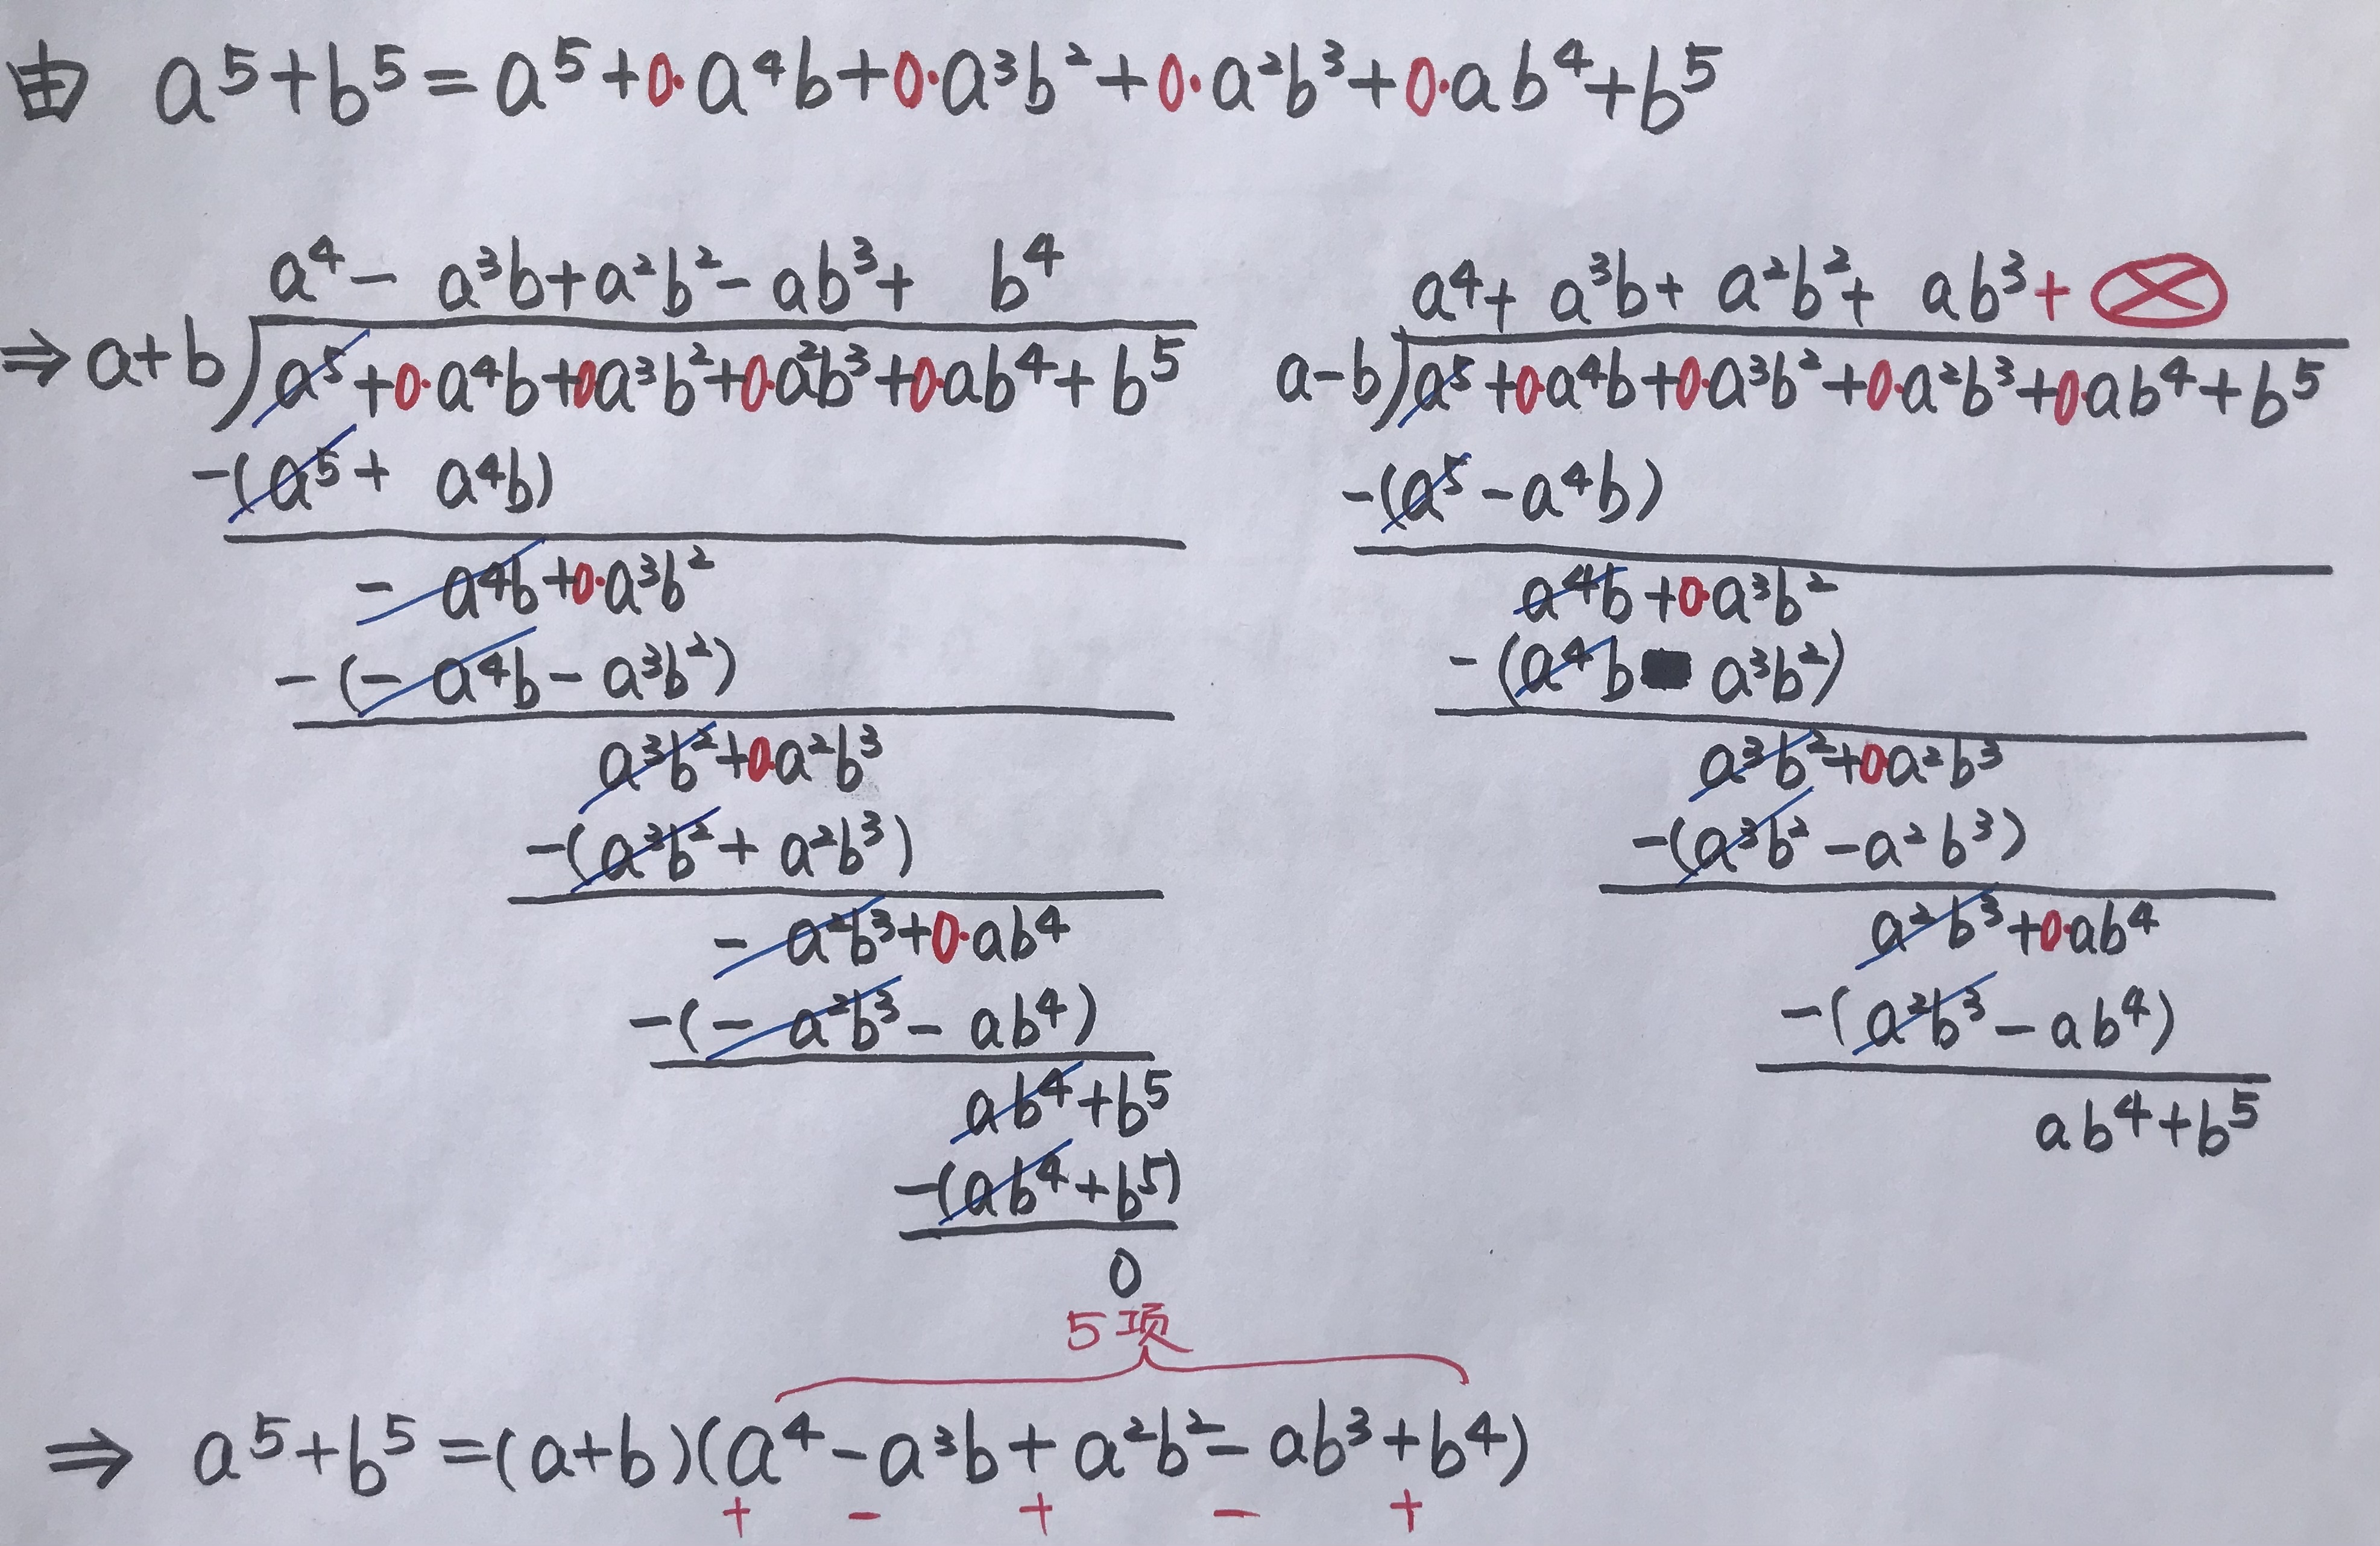 由 a⁵+b⁵=a⁵+0·a⁴b+0·a³b²+0·a²b³+0·ab⁴+b⁵
a⁴- a³b+a²b²-ab³+ b⁴
⇒ a+b)a⁵+0·a⁴b+0a³b²+0·a²b³+0·ab⁴+b⁵
-(a⁵+ a⁴b)
- a⁴b+0·a³b²
-(-a⁴b-a³b²)
a³b²+0·a²b³
-(a³b²+a²b³)
-a²b³+0·ab⁴
-(-a²b³-ab⁴)
ab⁴+b⁵
-(ab⁴+b⁵)
0
a⁴+ a³b+ a²b²+ ab³+ ⊗
a-b)a⁵+0·a⁴b+0·a³b²+0·a²b³+0·ab⁴+b⁵
-(a⁵-a⁴b)
a⁴b+0·a³b²
-(a⁴b a³b²)
a³b²+0a²b³
-(a³b²-a²b³)
a²b³+0·ab⁴
-(a²b³-ab⁴)
ab⁴+b⁵
5项
⇒ a⁵+b⁵=(a+b)(a⁴-a³b+a²b²-ab³+b⁴)
+ - + - +